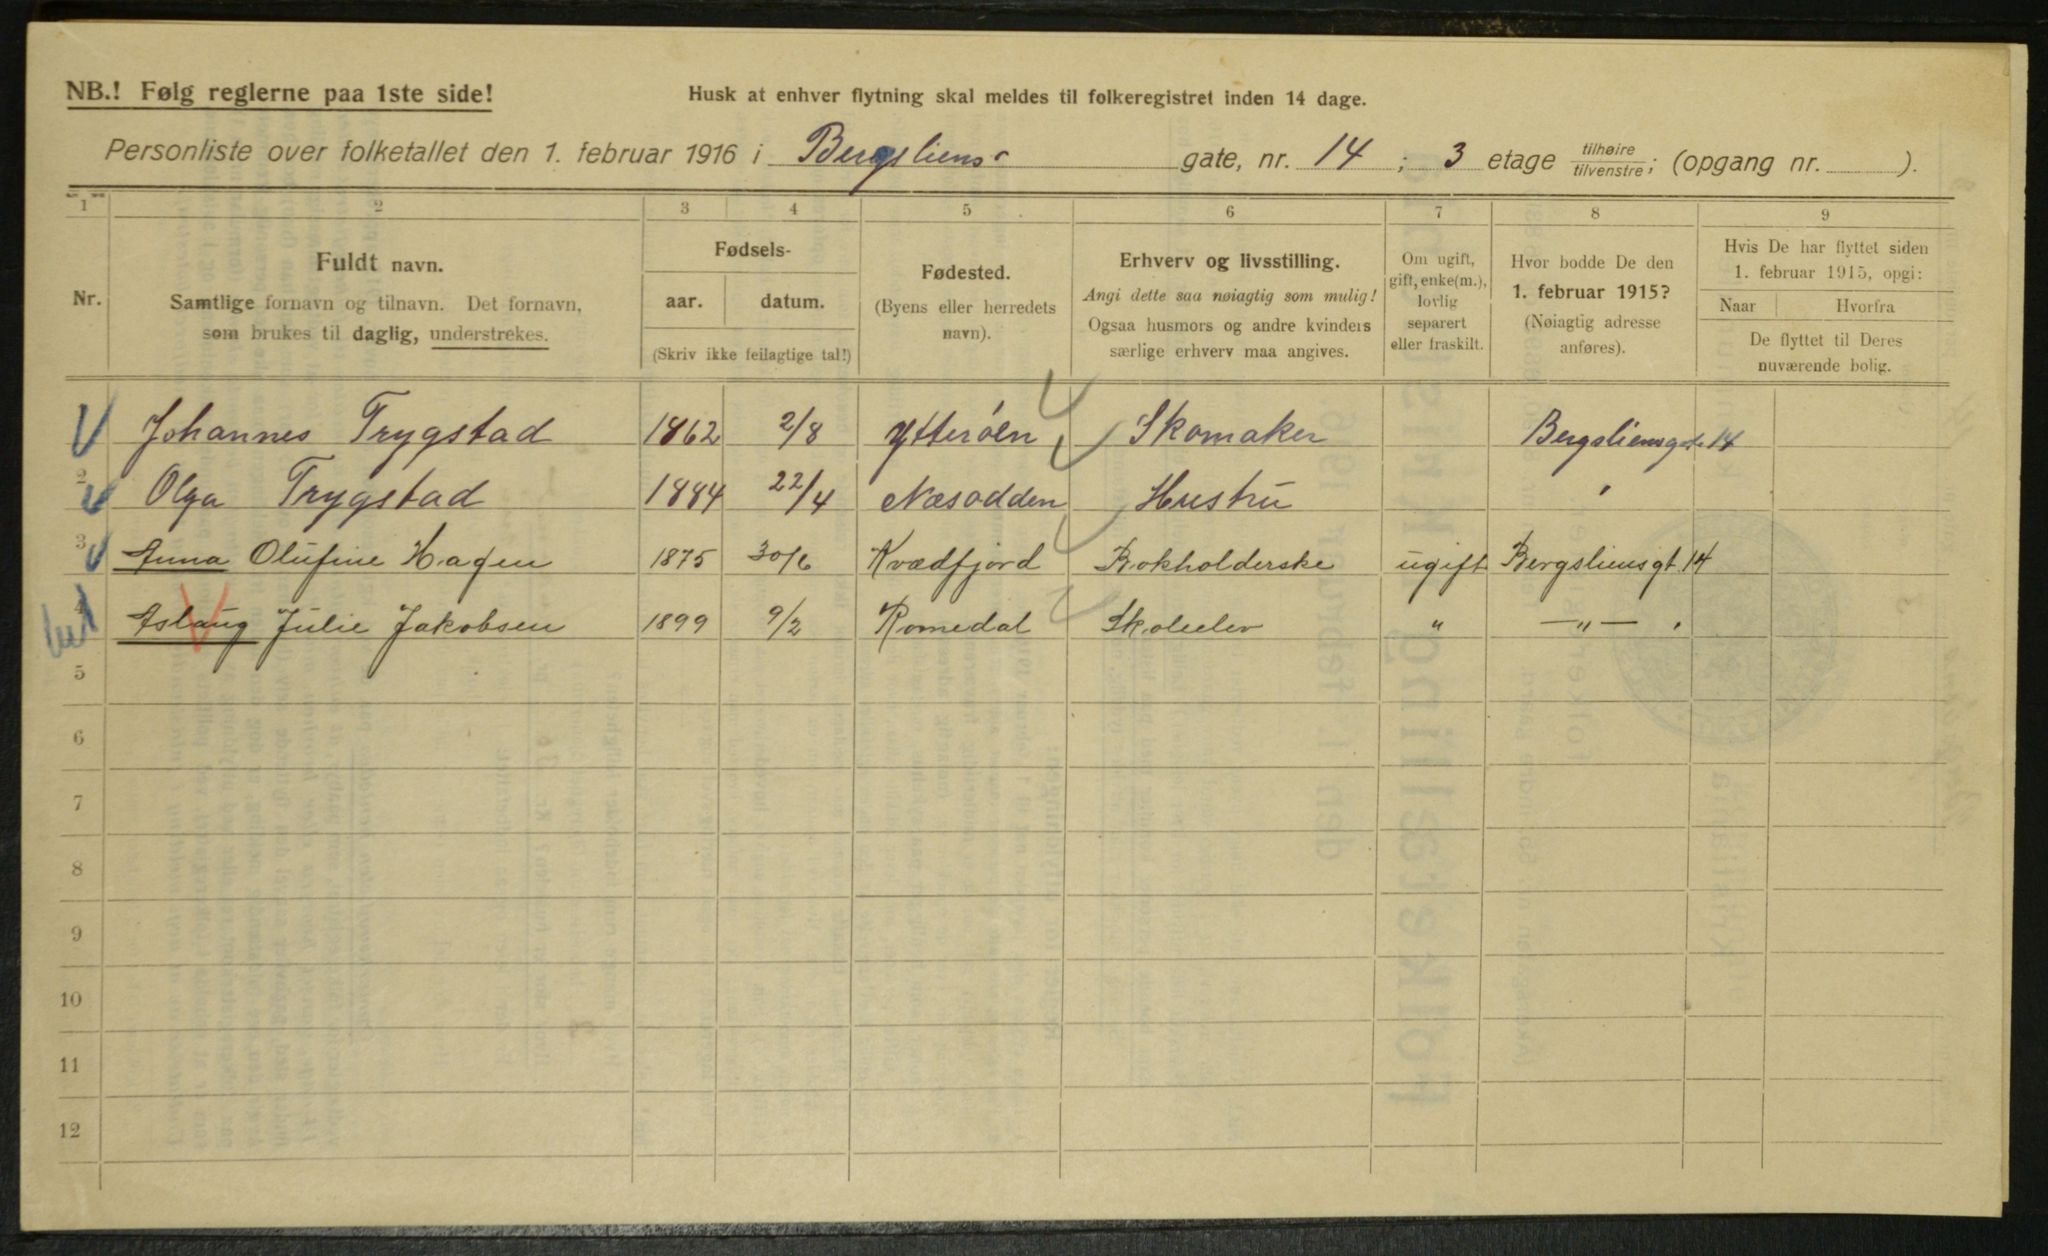 NB.! Følg reglerne paa 1ste side!
Husk at enhver flytning skal meldes til folkeregistret inden 14 dage.
Personliste over folketallet den 1. februar 1916 i Bergsliens gate, nr. 14 ; 3 etage tilhøire tilvenstre ; (opgang nr. ).
1 2 3 4 5 6 7 8 9
Nr.
Fuldt navn.
Samtlige fornavn og tilnavn. Det fornavn,
som brukes til daglig, understrekes.
Fødsels-
aar. datum.
(Skriv ikke feilagtige tal!)
Fødested.
(Byens eller herredets
navn).
Erhverv og livsstilling.
Angi dette saa nøiagtig som mulig!
Ogsaa husmors og andre kvinders
særlige erhverv maa angives.
Om ugift,
gift, enke(m.),
lovlig
separert
eller fraskilt.
Hvor bodde De den
1. februar 1915?
(Nøiagtig adresse
anføres).
Hvis De har flyttet siden
1. februar 1915, opgi:
Naar Hvorfra
De flyttet til Deres
nuværende bolig.
Johannes Trygstad 1862 2/8 Ytterøen Skomaker Bergsliensgt. 14
2 Olga Trygstad 1884 22/4 Næsodden Hustru "
3 Anna Olufine Hagen 1875 30/6 Kvædfjord Bokholderske ugift Bergsliensgt. 14
4 Aslaug Julie Jakobsen 1899 9/2 Romedal Skoleelev " —"— .
5
6
7
8
9
10
11
12